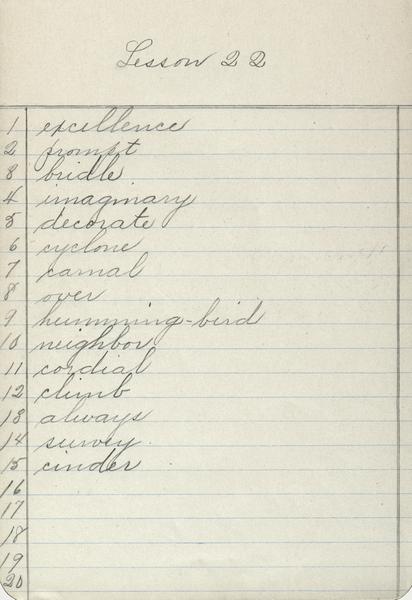 Lesson 22
1 excellence
2 prompt
3 bridle
4 imaginary
5 decorate
6 cyclone
7 camal
8 over
9 humming-bird
10 neighbor
11 cordial
12 climb
13 always
14 survey
15 cinder
16
17
18
19
20